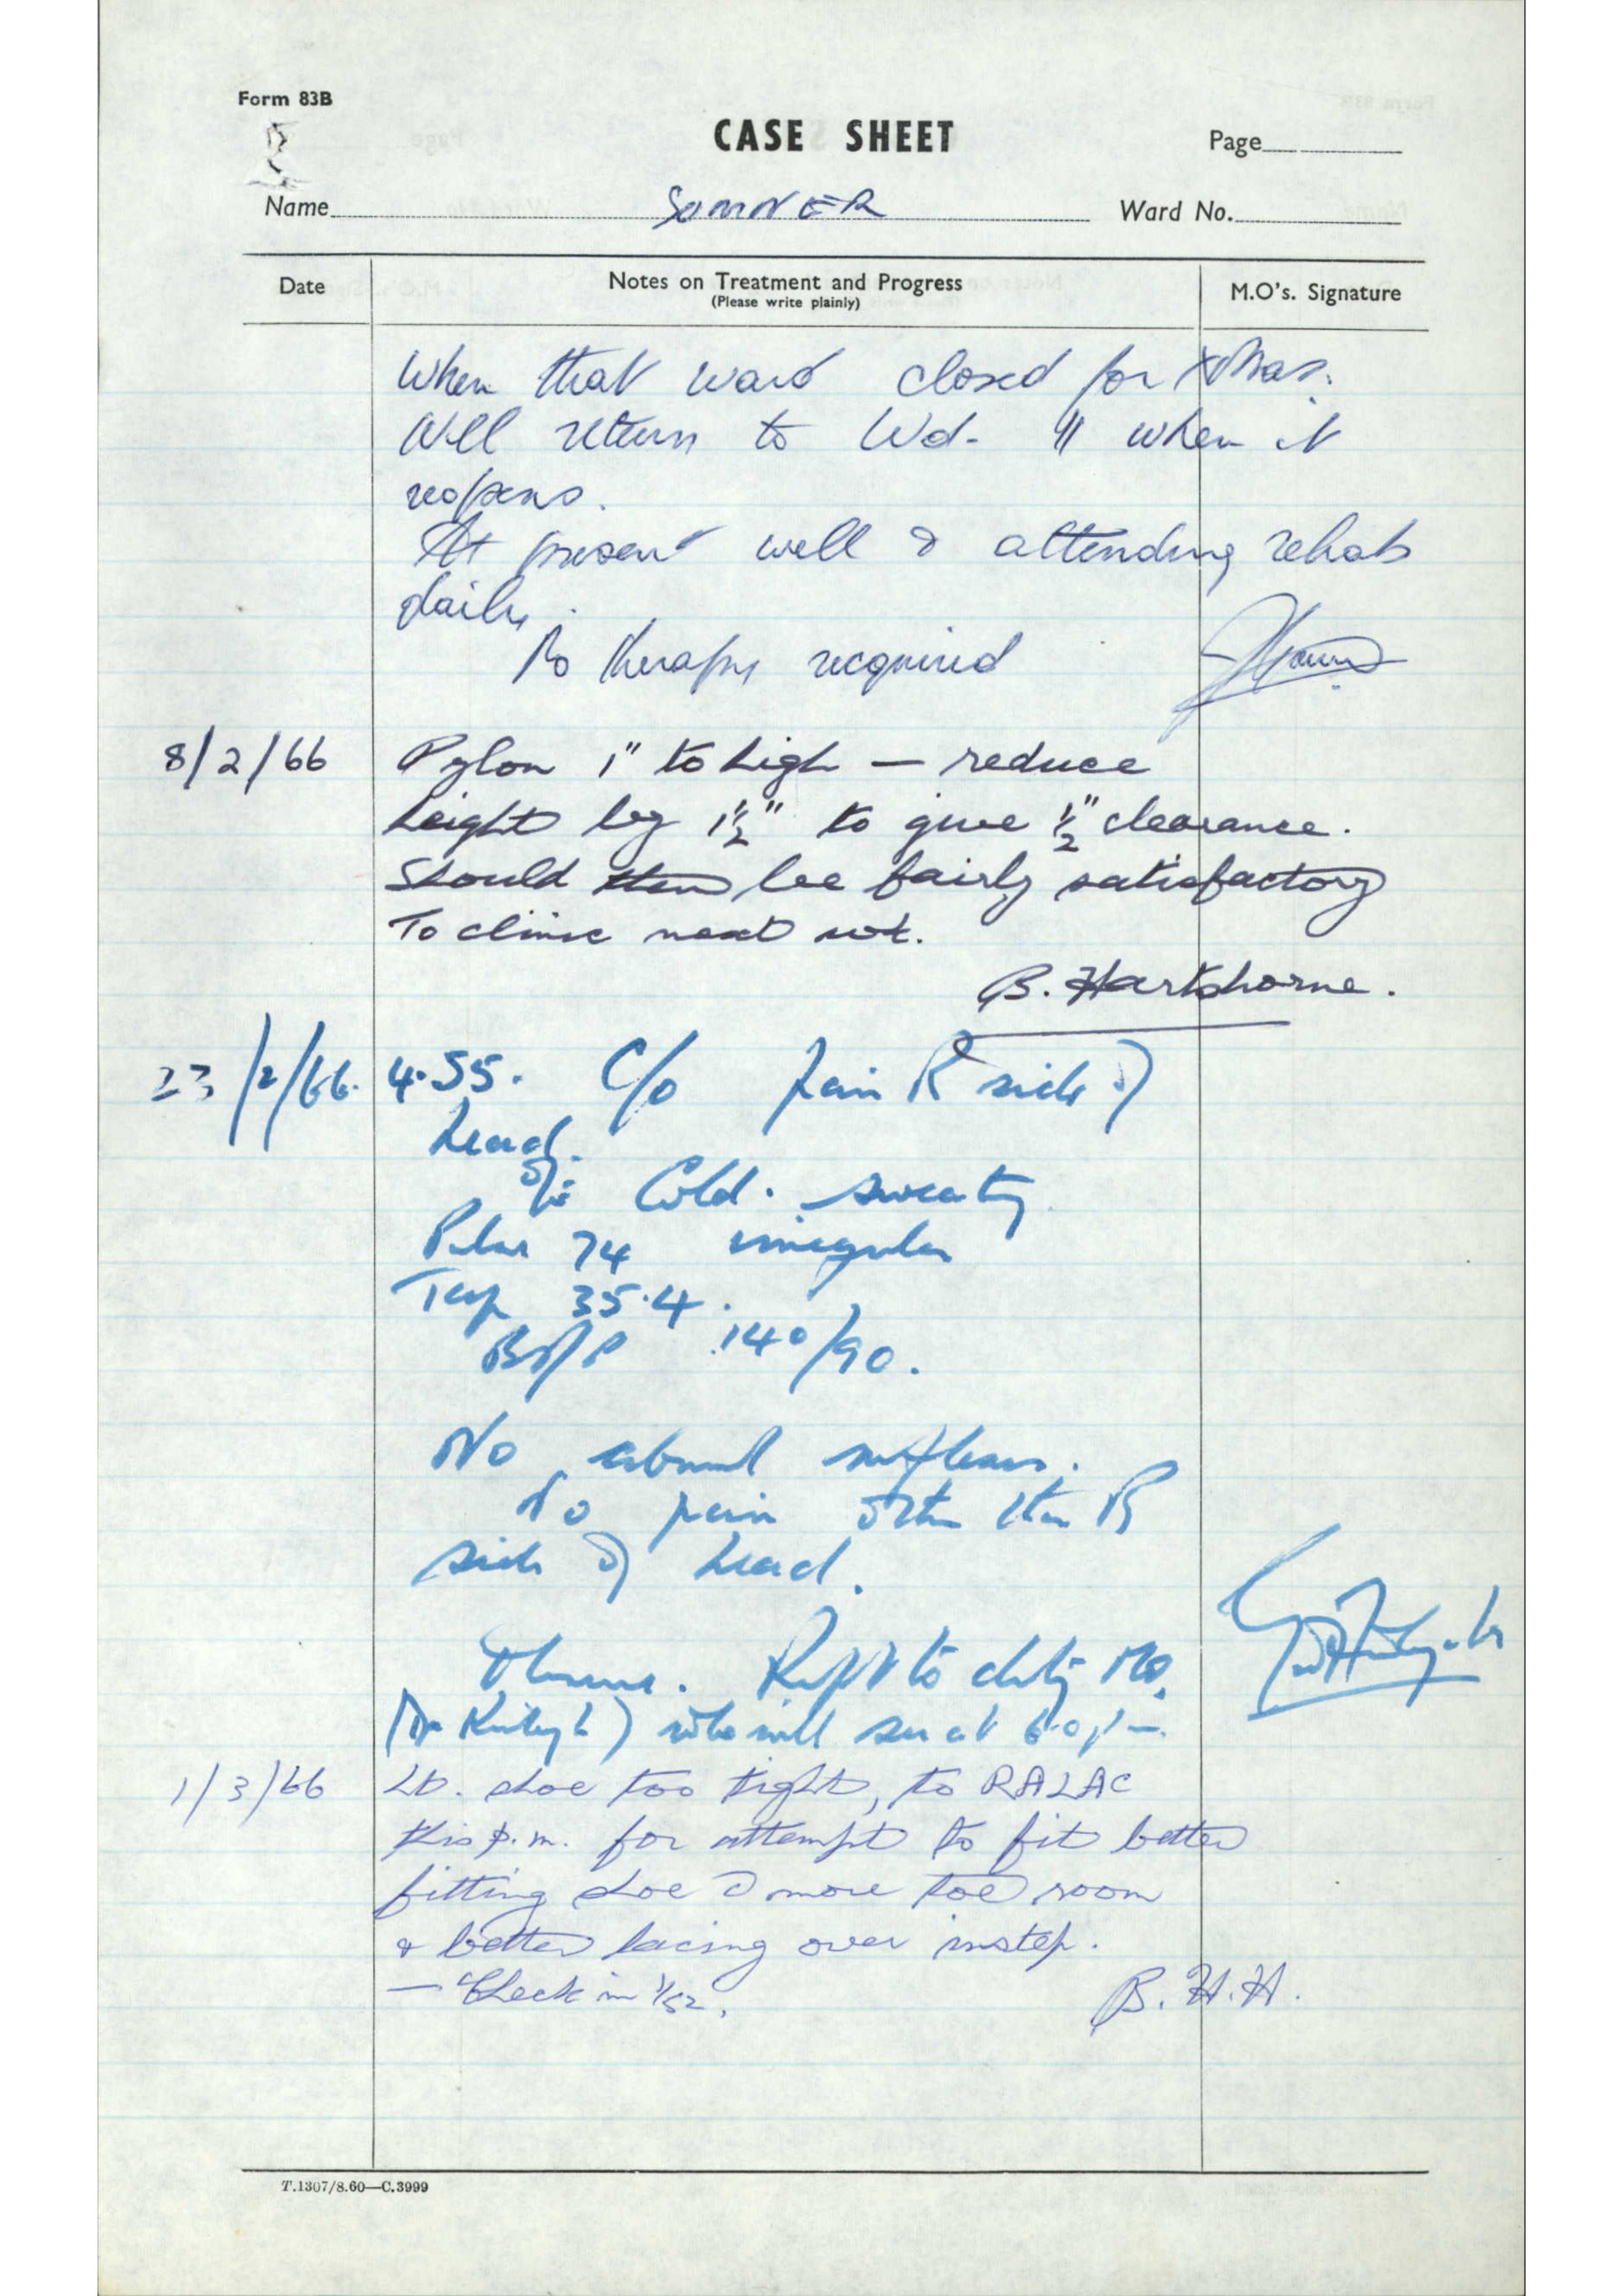 Form 83B
CASE SHEET
Page
Name SOMNER Ward No.
Date Notes on Treatment and Progress M.O's. Signature
(Please write plainly)
When that ward closed for Xmas.
Will return to Wd. 11 when it
reopens.
At present well & attending rehab
daily.
No therapy recquired
8/2/66 Pylon 1" to high — reduce
height by 1½" to give ½" clearance.
Should then be fairly satisfactory
To clinic next wk.
B. Hartshorne.
23/2/66. 4.55. C/o pain R side of
head.
O/E Cold. sweaty
Pulse 74 irregular
Temp 35.4.
B/P 140/90.
No abnormal reflexes.
No pain other than R
side of head.
Rept to duty MO.
(Dr ) who will see at 6.0 pm
1/3/66 Lt. shoe too tight, to RALAC
this p.m. for attempt to fit better
fitting shoe more toe room
& better lacing over instep.
— Check in 1/52.
B.H.H.
T.1307/8.60—C.3999